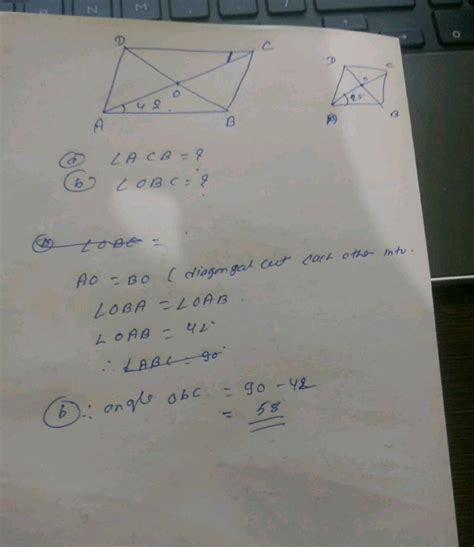 D
C
O
42.
A
B
D
C
O
25
A
B
(a) ∠ACB = ?
(b) ∠OBC = ?
=
AO = BO ( diagongal cut each other into.
∠OBA = ∠OAB.
∠OAB = 42
∴ ∠ABC = 90
(b) ∴ angle OBC = 90 - 42
= 58